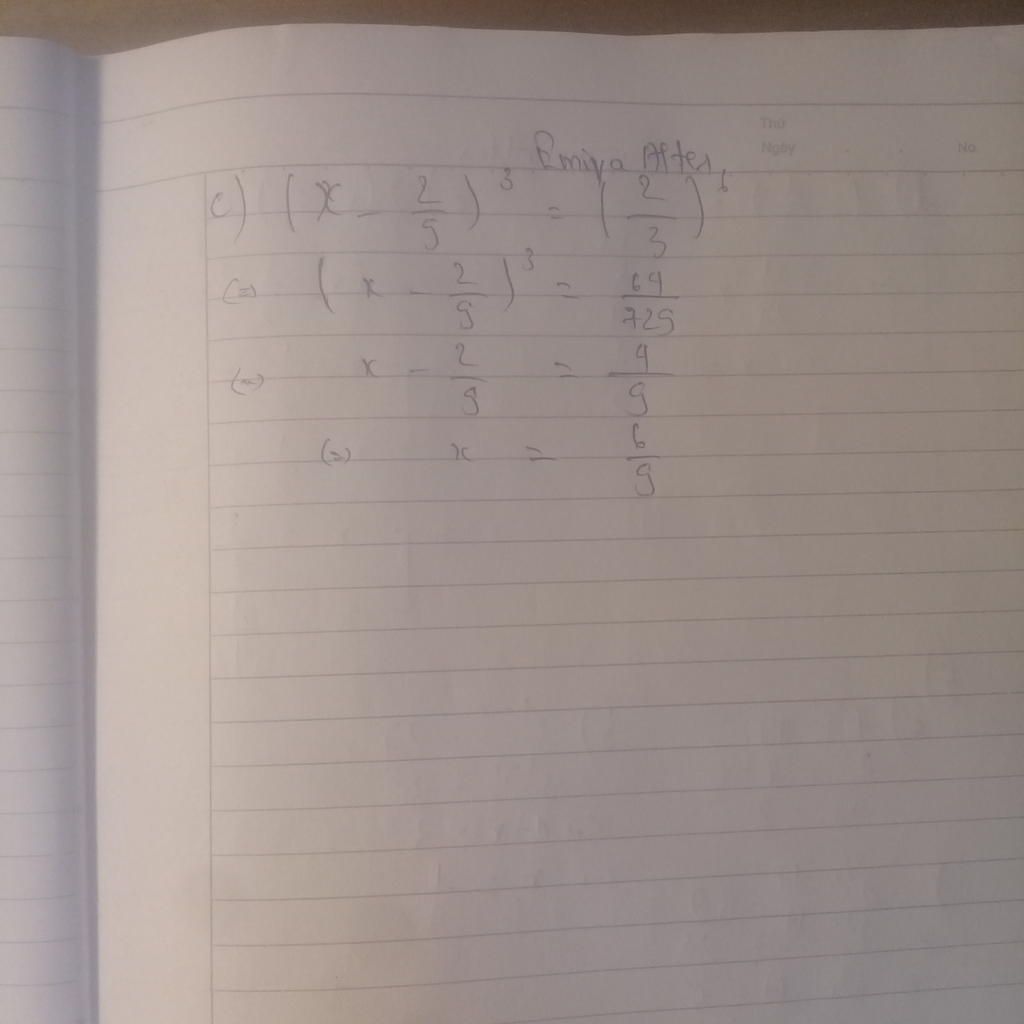 Thứ
Ngày No.
Emiya Alter
c) (x - 2/9)^3 = (2/3)^6
(=) (x - 2/9)^3 = 64/729
(=) x - 2/9 = 4/9
(=) x = 6/9